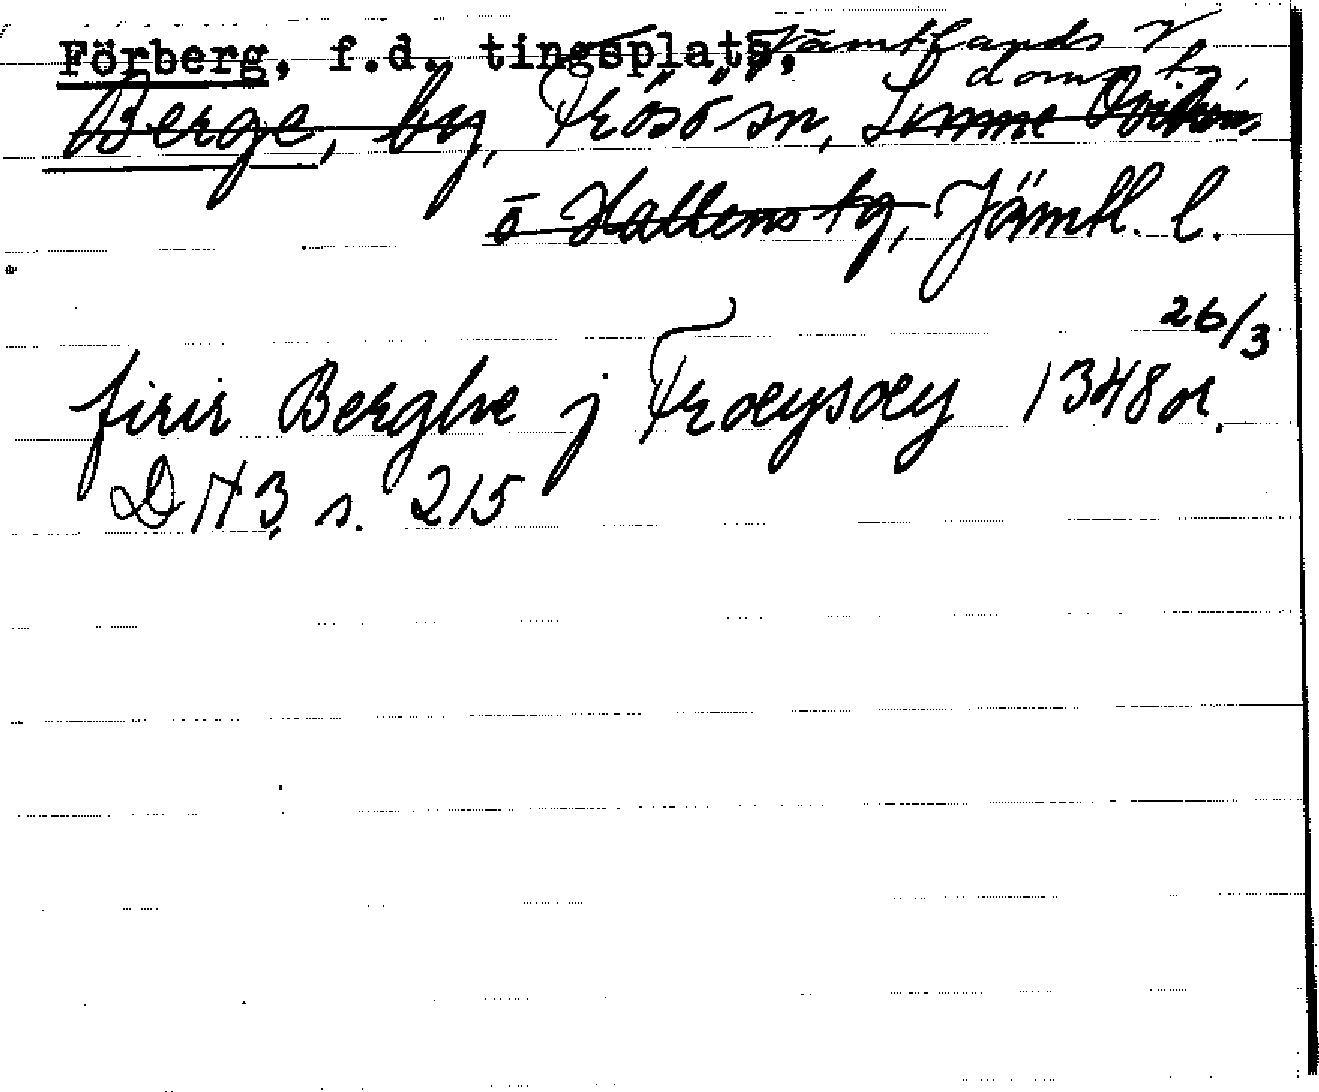 Förberg, f.d. tingsplats, Jämtlands v.
doms tg,
Berge, by, Frösö sn, Sunne Ovikens
o Hallens tg, Jämtl. l.
26/3
firir Berghe j Frœysœy 1348 or.
DN 3 s. 215